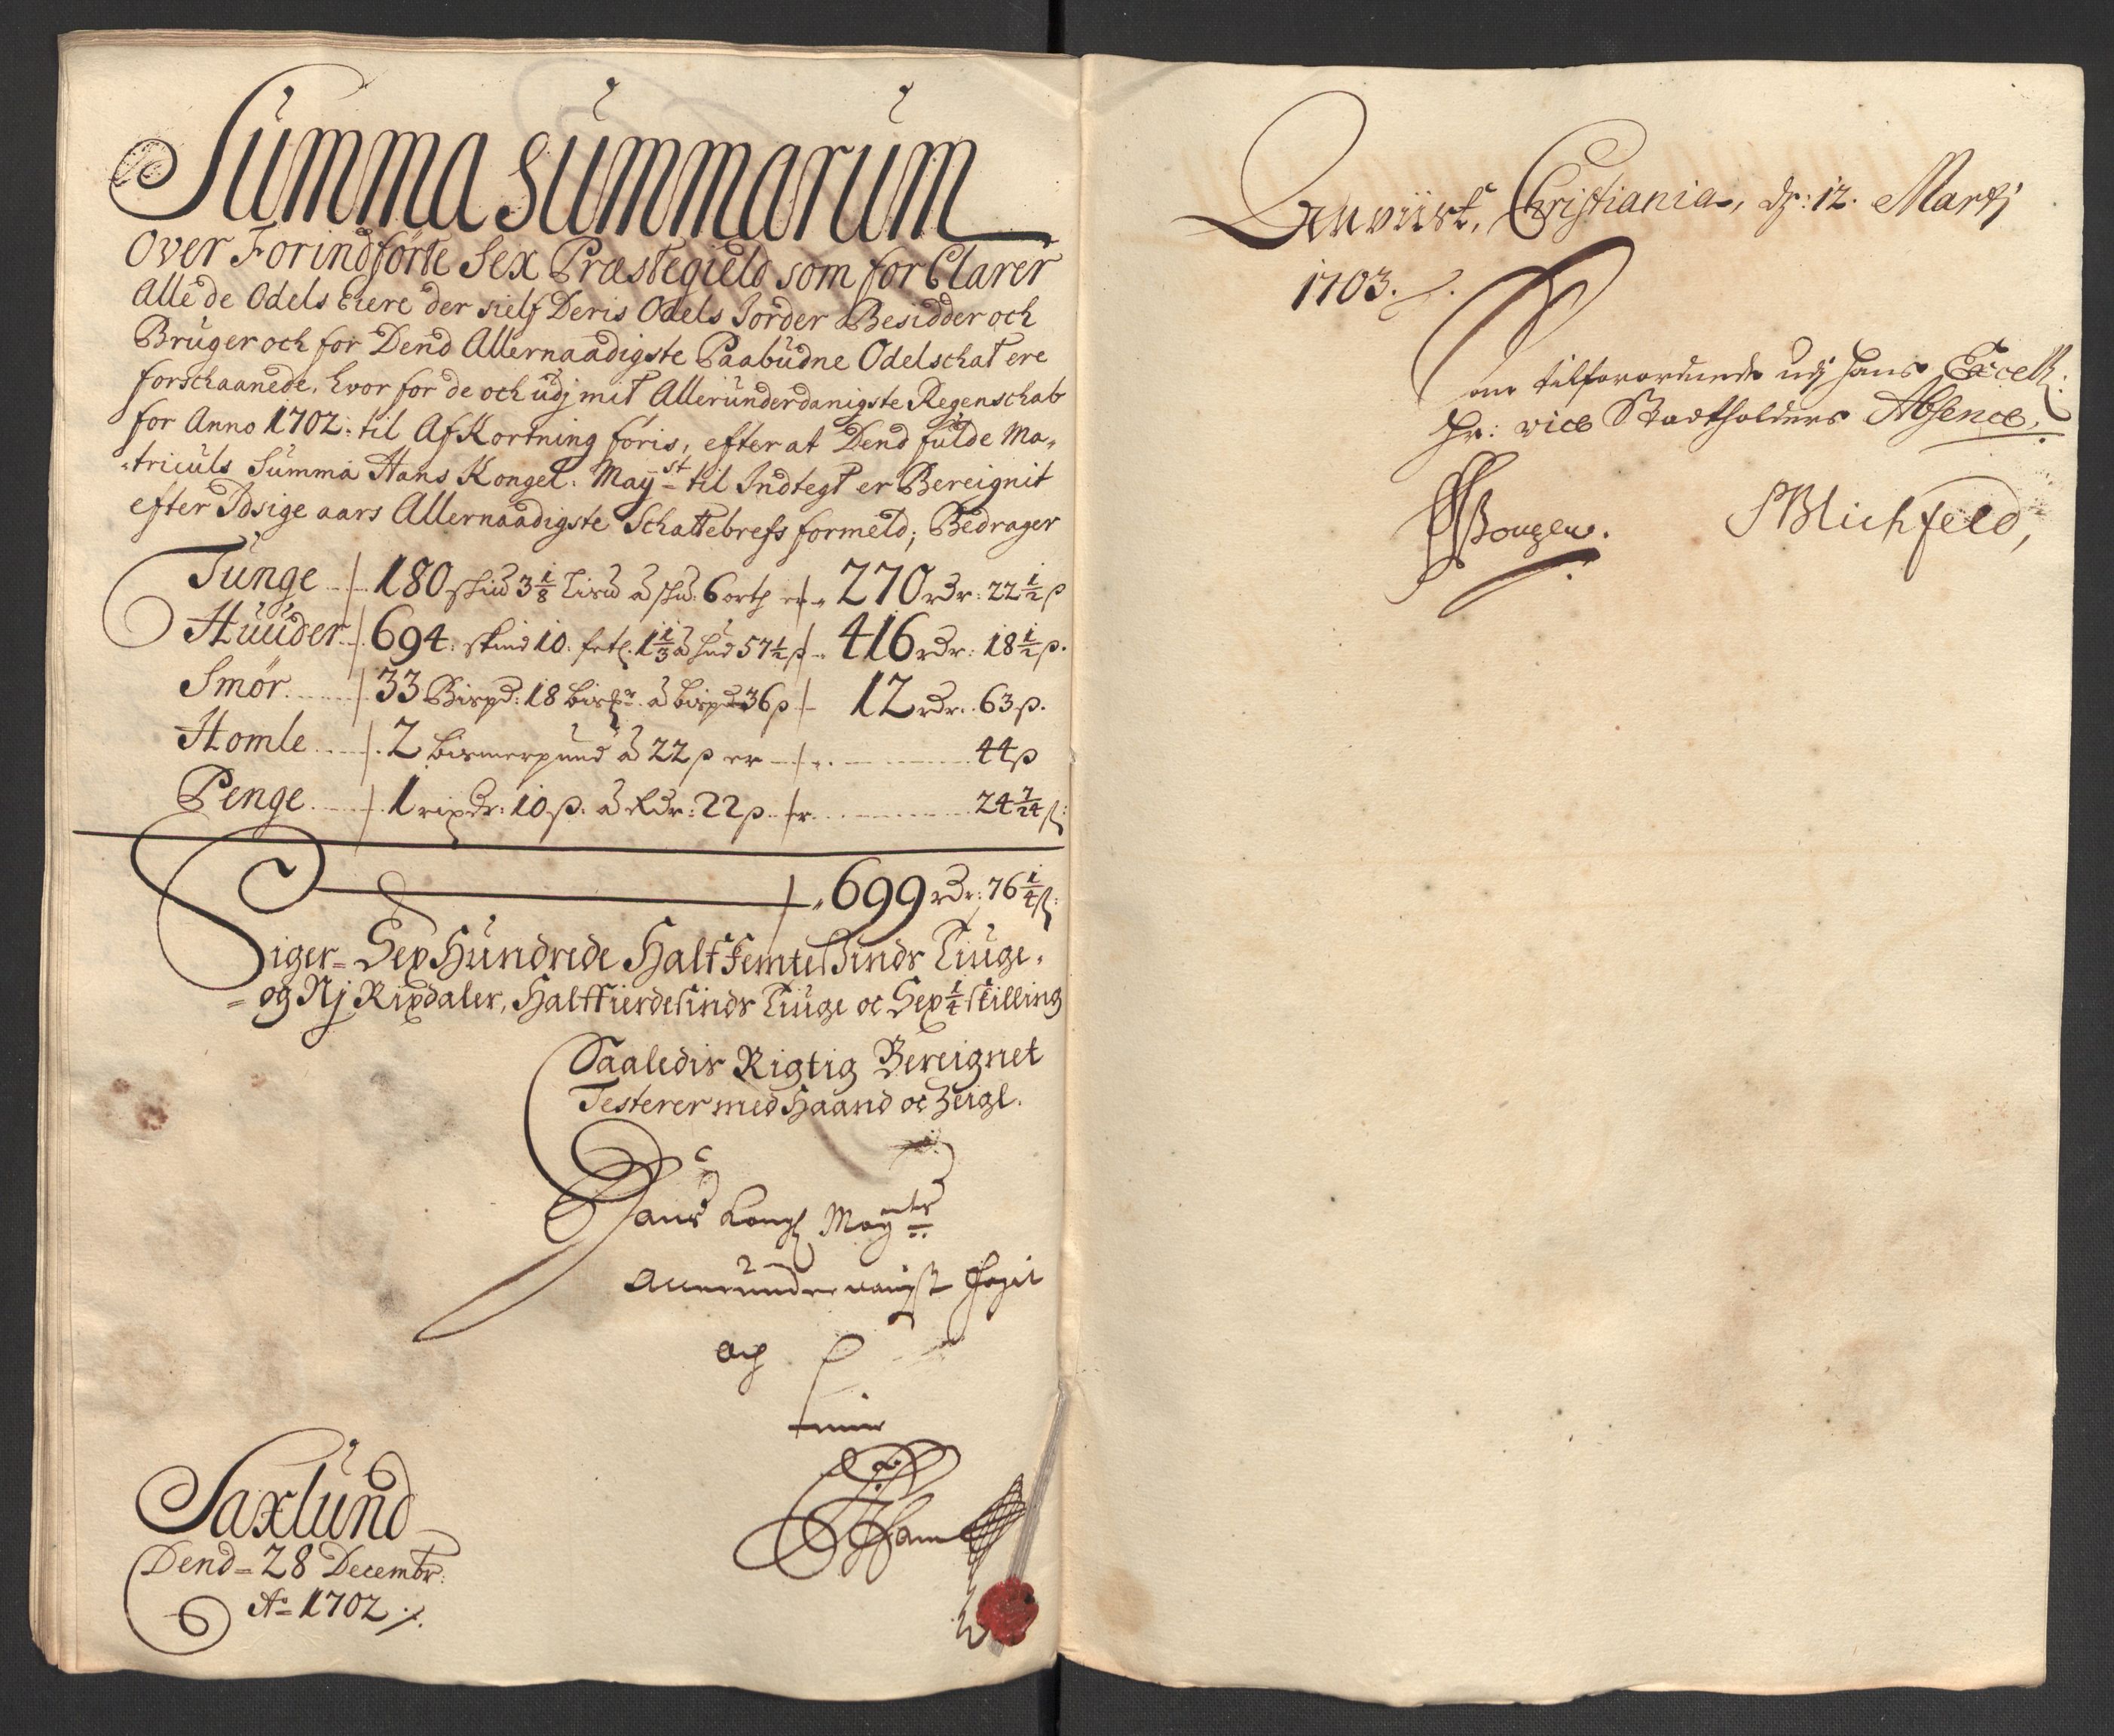 Summa Summarum
Over Forindførte Sex Præstegield som for Clarer
Alle de Odels Eiere der sielf Deris Odels Jorder Besidder och
Bruger och for Dend Allernaadigste Paabudne Odelschat ere
forschaanede, hvor for de och udj mit Allerunderdanigste Regenschab
for Anno 1702: til AfKortning føris, efter at Dend fulde Ma,,
,,triculs Summa Hans Kongel: May:st til Indtegt er Bereignit
efter Idsige aars Allernaadigste Schattebrefs formeld; Bedrager
Tunge 180 skiud 3 1/8 Lisd á skd: 6 ort er 270 rdr: 22 1/2 ß
Huuder 694: skind 10. 1 1/3 á hud 57 1/2 ß 416 rdr: 18 1/2 ß.
Smør 33 Bispd: 18 á bispd 36 ß 12 rdr. 63 ß.
Homle 2 bismerpund á 22 ß er 44 ß
Penge 1 rixdr: 10 ß. á Rdr: 22 ß er 24 7/24 ß:
699 rdr: 76 1/4 ß:
Siger= Sex Hundrede Halffemtesinds Tiuge,
= og Nj Rixdaler, Halffierdesinds Tiuge oc Sex 1/4 skilling
Saaledis Rigtig Bereignet
Testerer med Haand oc Zeigl.
Hans Kongl May:ts
Allerunderdanigst Fogit
och
Saxlund
Dend= 28 Decembr:
Ao= 1702
Reviist, Christiania, d: 12. Martj
1703.
tilforordnede udj Hans Excell:
Hr: vice Stadtholders Absence,
Blichfeld,